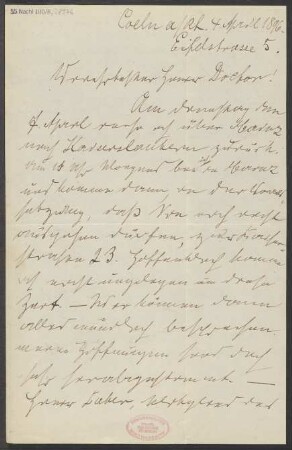 Coeln a/Rh. 4 April 1896.
Eifelstrasse 5.
Verehrtester Herr Doctor!
Am Dienstag den
7 April reise ich über Mainz
nach Kaiserslautern zurück.
11 Uhr Morgens bei in Mainz
und komme dann in der Voraus
setzung, daß Sie mich nicht
dürfen, zur
strasse 23. Hoffentlich komme
ich nicht ungelegen in dieser
Zeit. — Wir können dann
alles mündlich besprechen,
meine Hoffnungen sind doch
sehr herabgestimmt. —
Herr Laber, Mitglied des